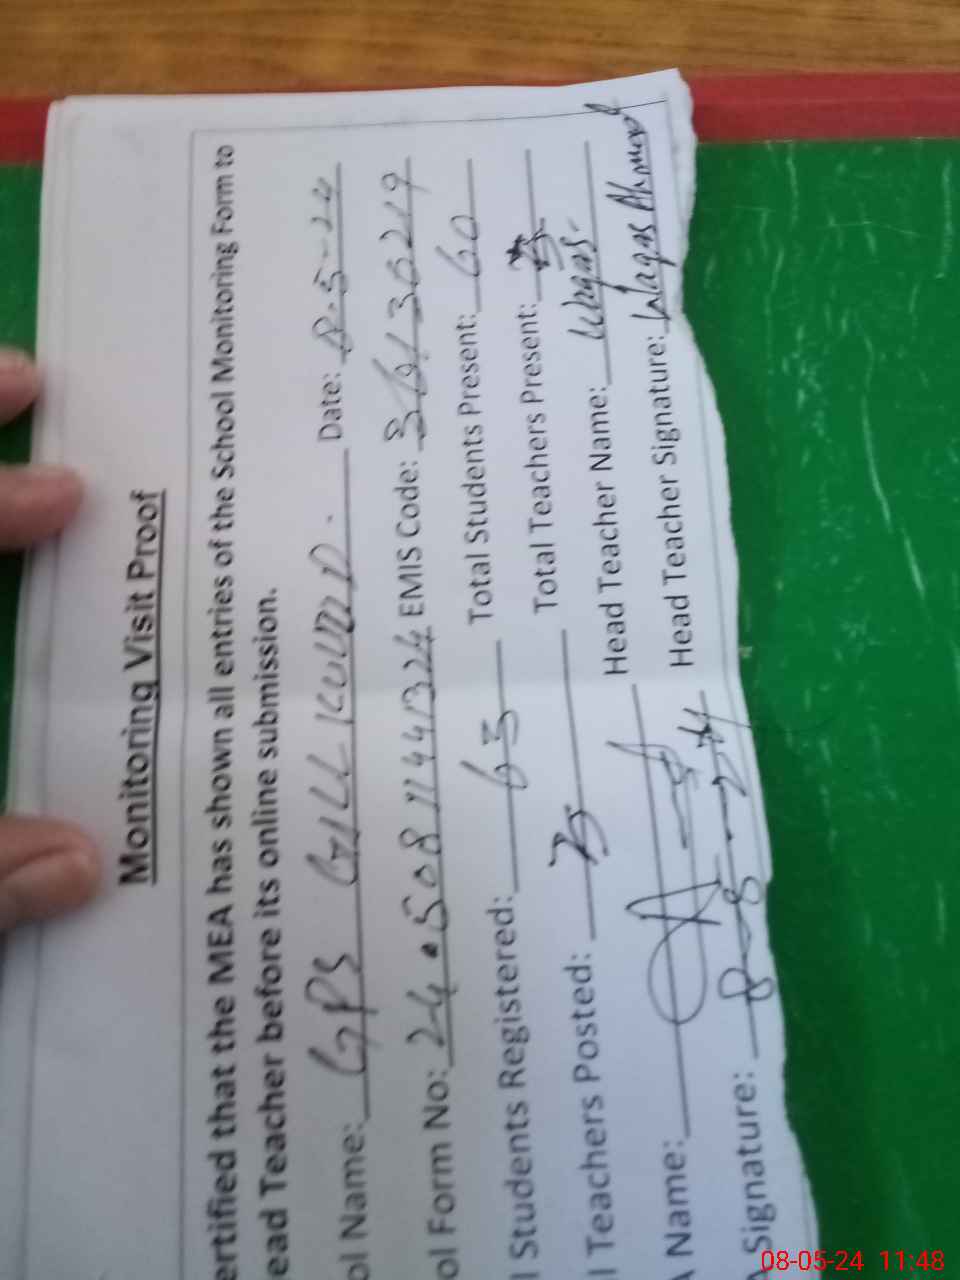 Monitoring Visit Proof
ertified that the MEA has shown all entries of the School Monitoring Form to
ead Teacher before its online submission.
ol Name: GPS GILL KOURD. Date: 8-5-24
ol Form No: 24050811441324 EMIS Code: 36130219
l Students Registered: 63 Total Students Present: 60
l Teachers Posted: Total Teachers Present:
A Name: Head Teacher Name: Waqas
Signature: 8-5-24 Head Teacher Signature: Waqas Ahmed
08-05-24 11:48